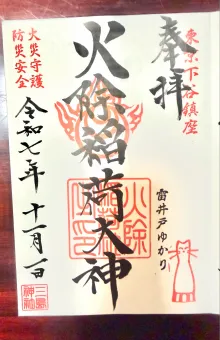 東京下谷鎮座
奉拝
火除稲荷大神
雷井戸ゆかり
火災守護
防災安全
令和七年 十一月一日
火除
三島
神社